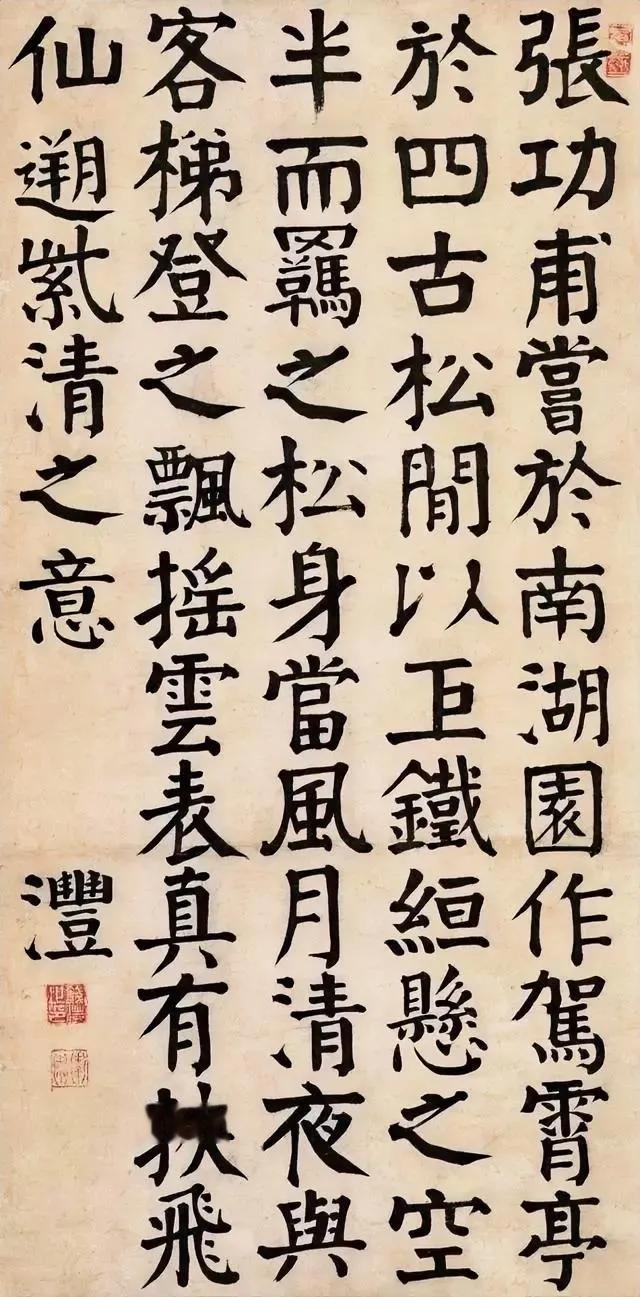 張功甫嘗於南湖園作駕霄亭
於四古松閒以巨鐵絙懸之空
半而羈之松身當風月清夜與
客梯登之飄搖雲表真有挾飛
仙遡紫清之意
灃